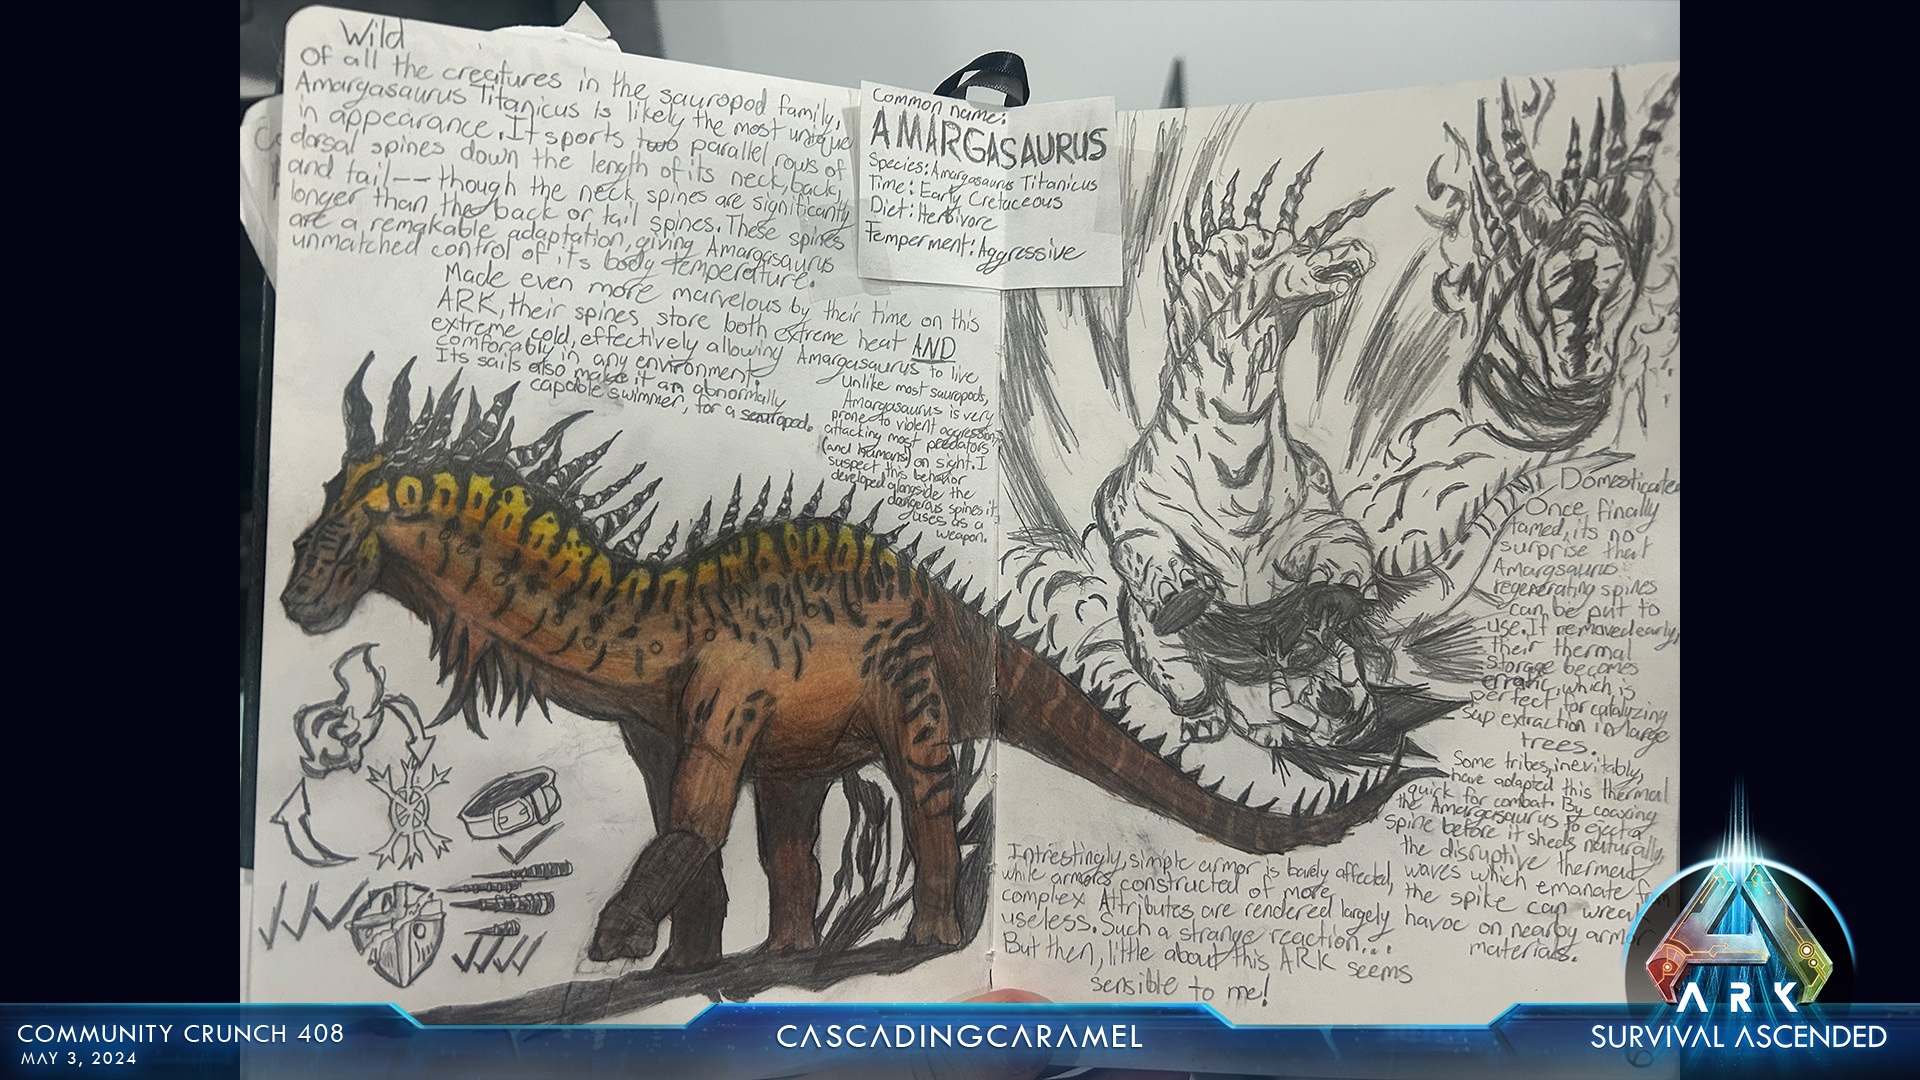 Wild
Of all the creatures in the sauropod family,
Amargasaurus Titanicus is likely the most unique
in appearance. It sports two parallel rows of
dorsal spines down the length of its neck, back,
and tail -- though the neck spines are significantly
longer than the back or tail spines. These spines
are a remakable adaptation, giving Amargasaurus
unmatched control of its body temperature.
Made even more marvelous by their time on this
ARK, their spines store both extreme heat AND
extreme cold, effectively allowing Amargasaurus to live
comforably in any environment.
Its sails also make it an abnormally
capable swimmer, for a sauropod.
Unlike most sauropods,
Amargasaurus is very
prone to violent aggression,
attacking most predators
(and humans) on sight. I
suspect this behavior
developed alongside the
dangerous spines it
uses as a
weapon.
Common name:
AMARGASAURUS
Species: Amargasaurus Titanicus
Time: Early Cretaceous
Diet: Herbivore
Temperment: Aggressive
Domesticated
Once finally
tamed, its no
surprise that
Amargsaurus
regenerating spines
can be put to
use. If removed early,
their thermal
storage becomes
erratic, which is
perfect for catalyzing
sap extraction in large
trees.
Some tribes, inevitably,
have adapted this thermal
quirk for combat. By coaxing
the Amargasaurus to eject a
spine before it sheds naturally,
the disruptive thermal
waves which emanate from
the spike can wreak
havoc on nearby armor
materials.
Intrestingly, simple armor is barely affected,
while armors constructed of more
complex Attributes are rendered largely
useless. Such a strange reaction...
But then, little about this ARK seems
sensible to me!
ARK
COMMUNITY CRUNCH 408
MAY 3, 2024
CASCADINGCARAMEL
SURVIVAL ASCENDED